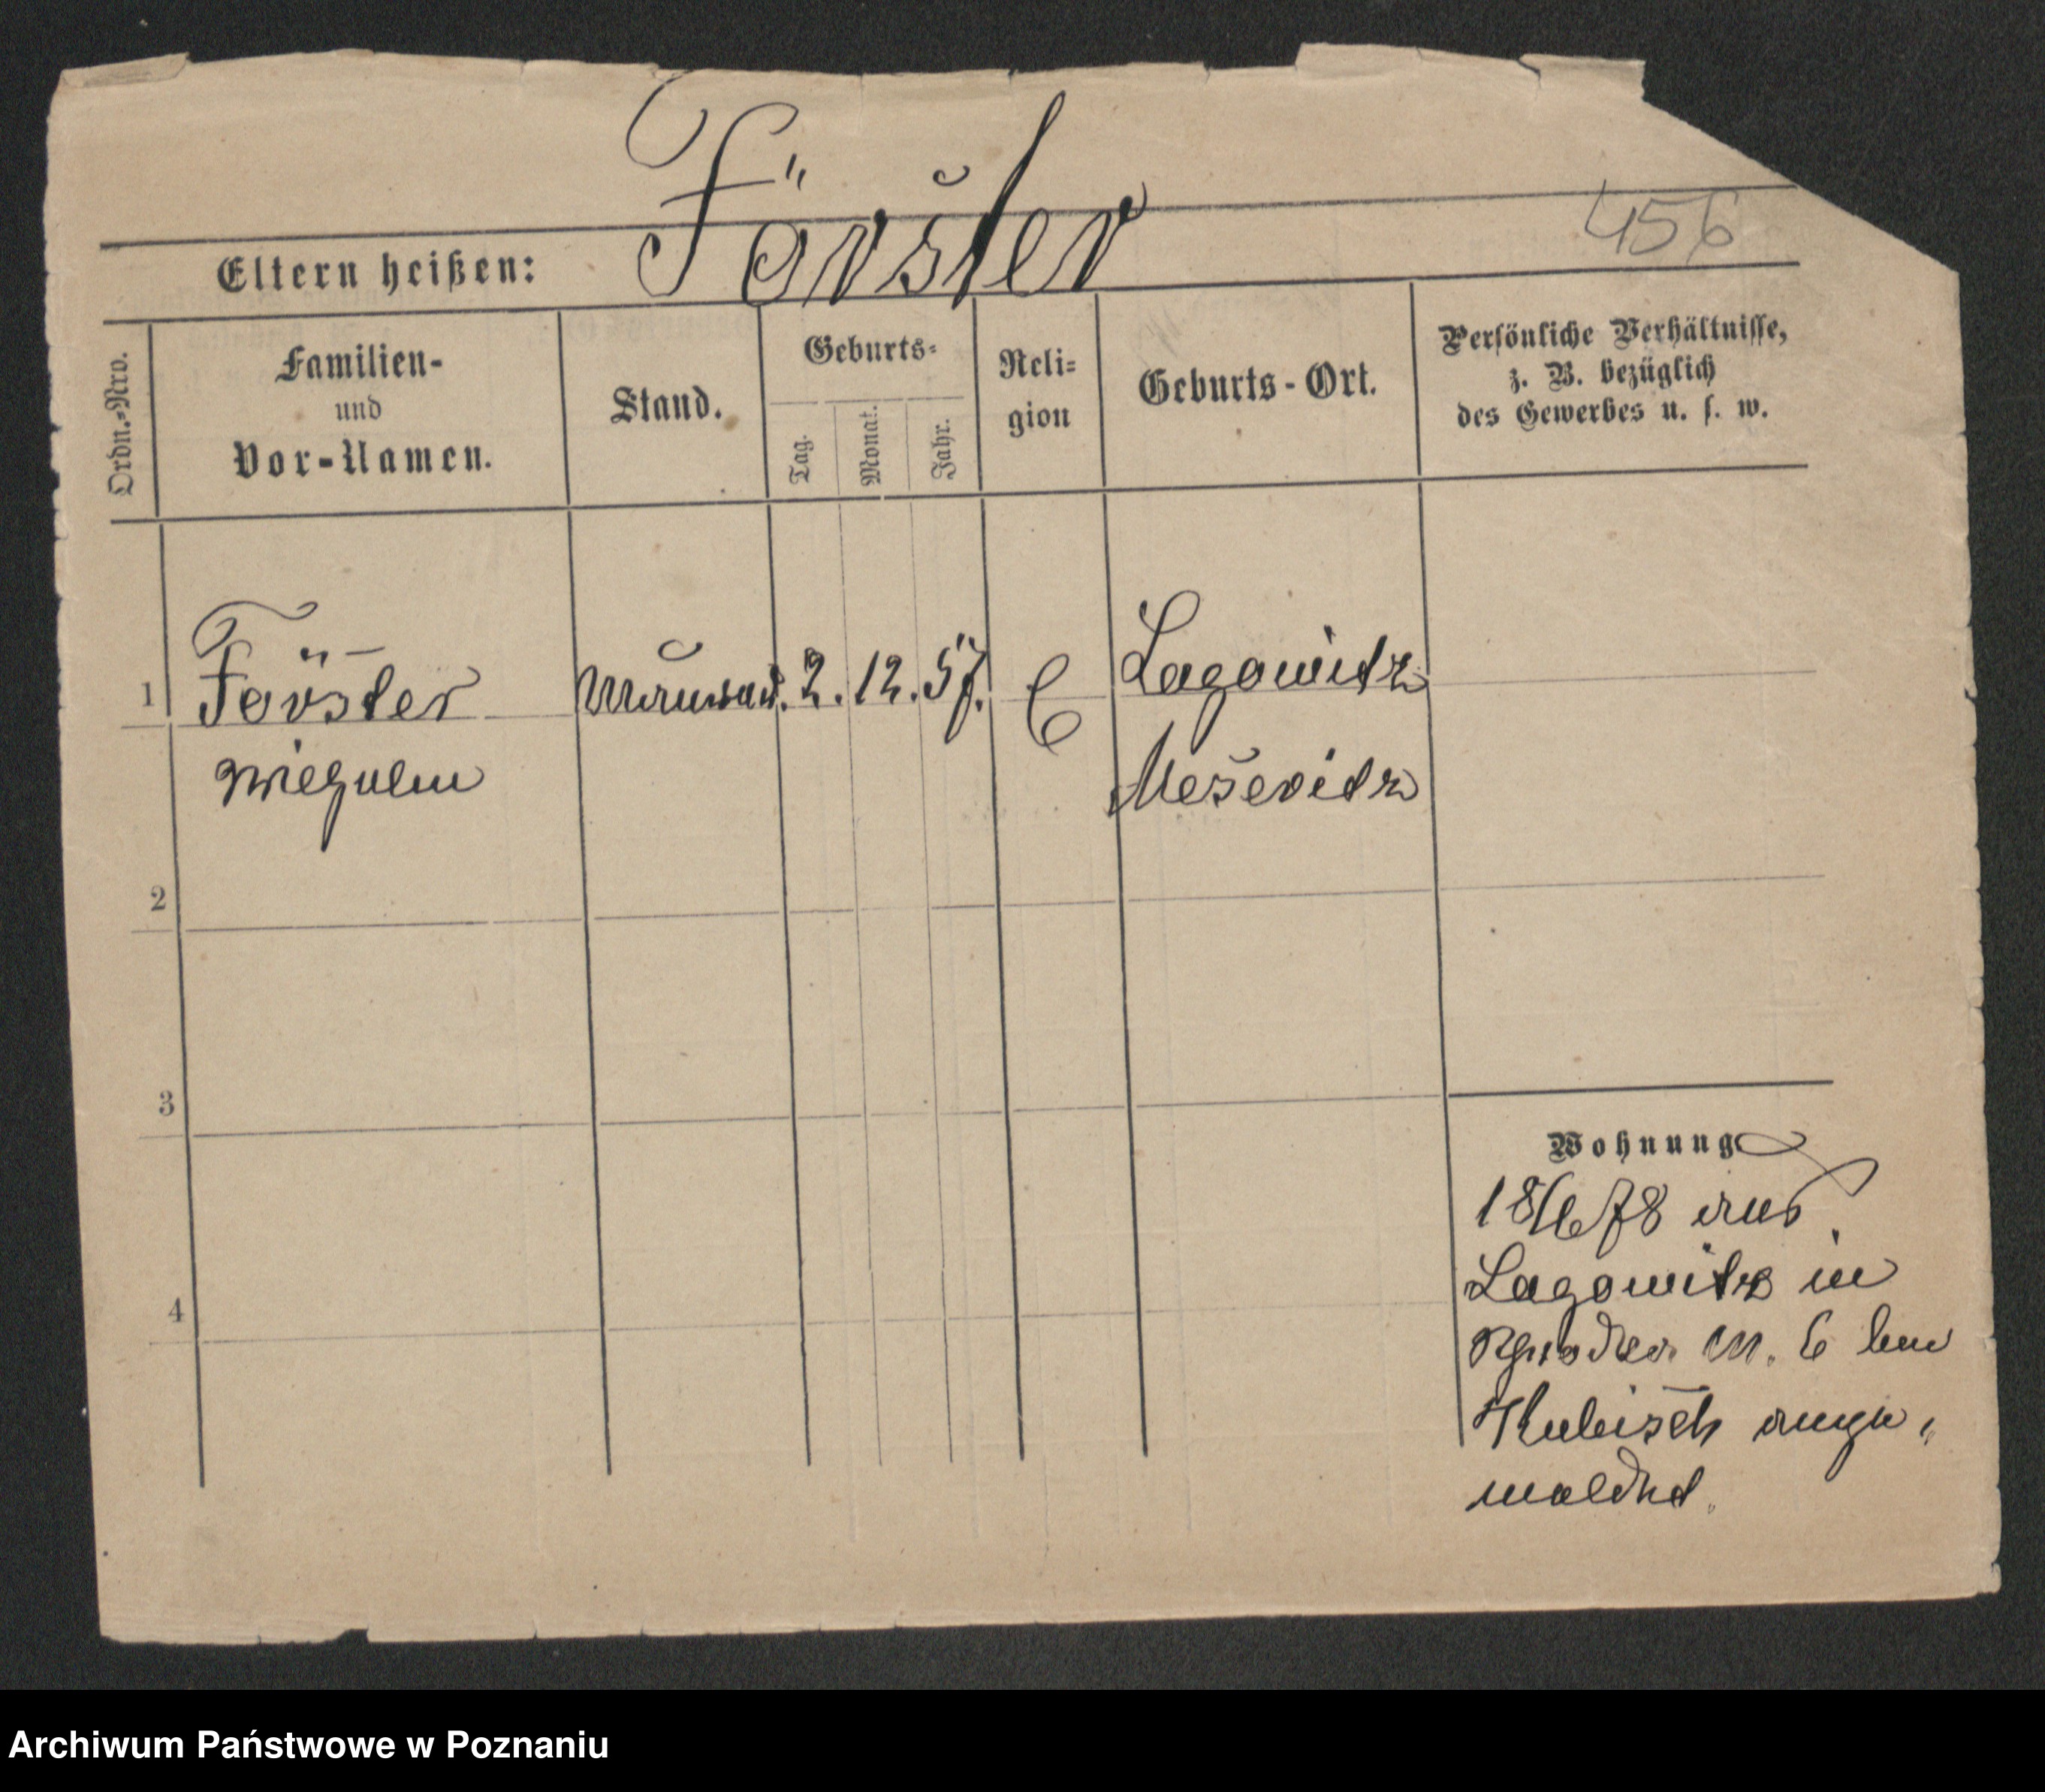 Förster
456
Eltern heißen:
Ordn.-Nro.
Familien-
und
Vor-Namen.
Stand.
Geburts-
Tag.
Monat.
Jahr.
Reli-
gion
Geburts-Ort.
Persönliche Verhältnisse,
z. B. bezüglich
des Gewerbes u. s. w.
1
Förster
2. 12. 57.
Lagowitz
Meseritz
2
3
4
Wohnung
18/6 78 aus
Lagowitz in
M. 6 bei
Kubisch ange-
meldet.
Archiwum Państwowe w Poznaniu